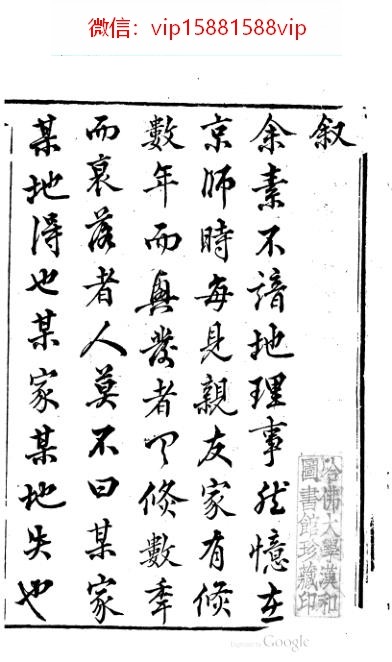 微信：vip15881588vip
叙
余素不諳地理事然憶在
京師時每見親友家有倏
數年而興發者又倏數秊
而衰落者人莫不曰某家
某地得也某家某地失也
哈佛大學漢和
圖書館珍藏印
Digitized by Google